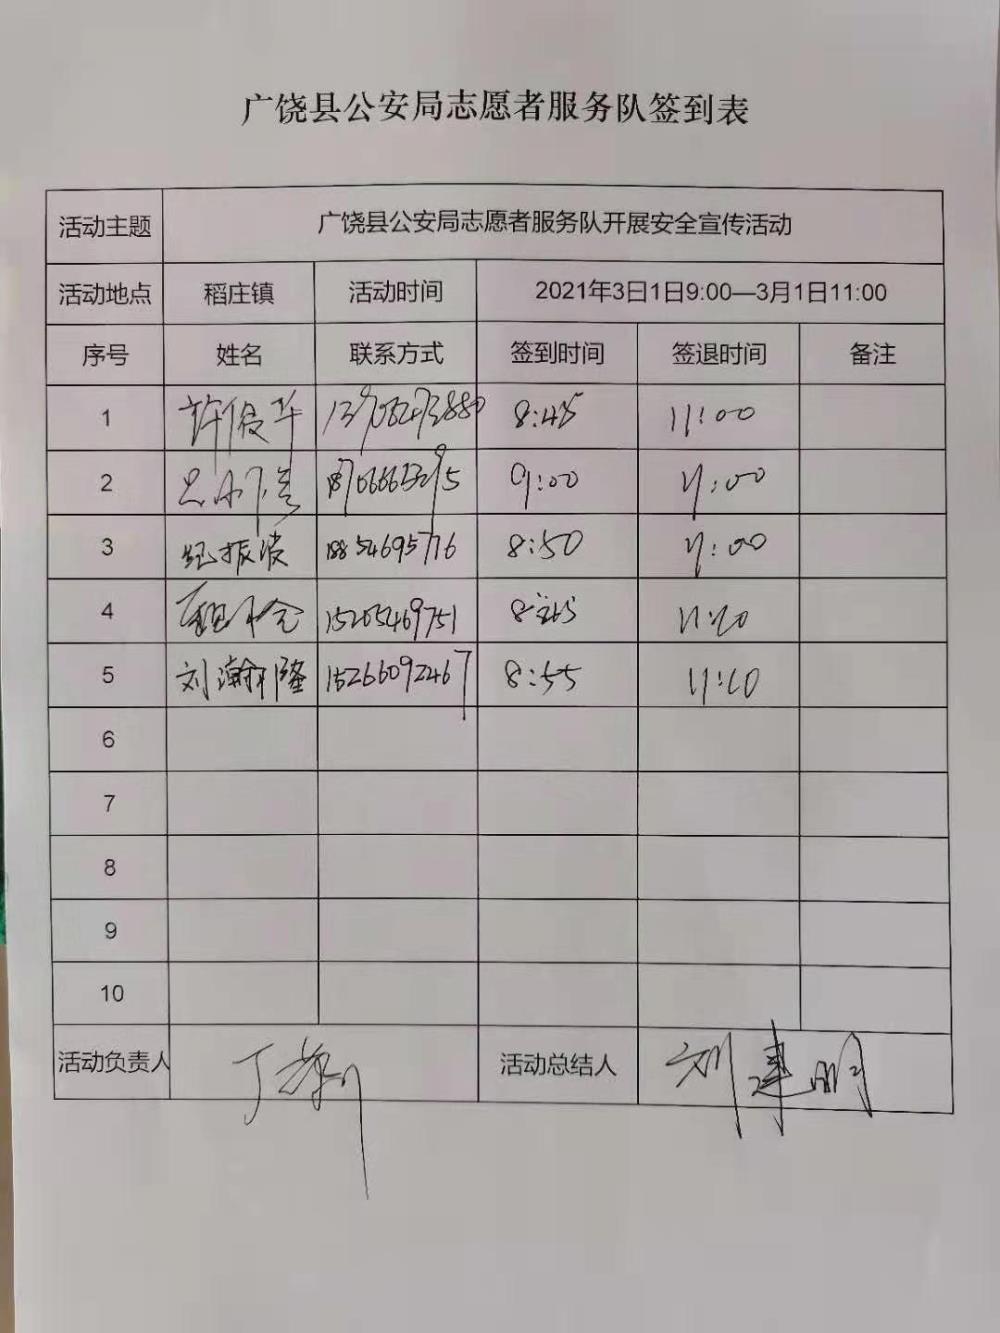 广饶县公安局志愿者服务队签到表
活动主题 广饶县公安局志愿者服务队开展安全宣传活动
活动地点 稻庄镇 活动时间 2021年3日1日9:00—3月1日11:00
序号 姓名 联系方式 签到时间 签退时间 备注
1 许俊华 8:45 11:00
2 9:00 11:00
3 纪振滨 18854695776 8:50 11:00
4 15205469751 11:10
5 刘瀚隆 15266092467 8:55 11:10
6
7
8
9
10
活动负责人 丁 活动总结人 刘建明